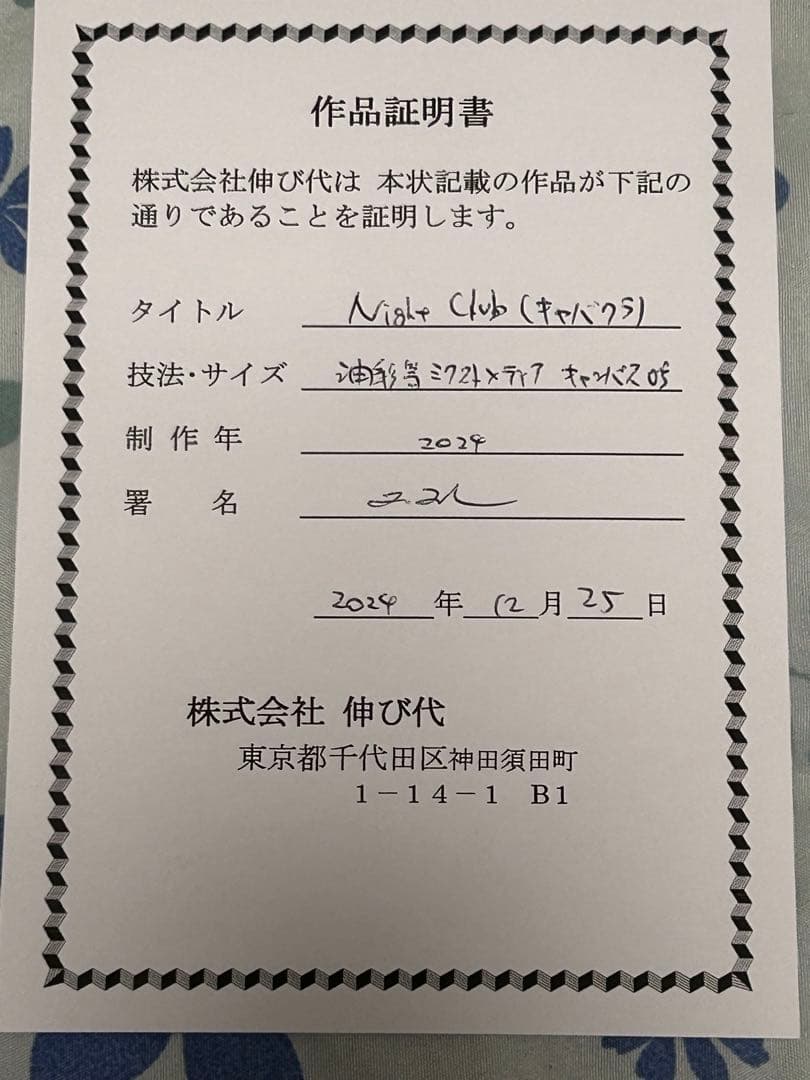 作品証明書
株式会社伸び代は 本状記載の作品が下記の
通りであることを証明します。
タイトル Night Club (キャバクラ)
技法・サイズ 油彩等ミクストメディア キャンバス
制作年 2024
署名
2024年12月25日
株式会社 伸び代
東京都千代田区神田須田町
1－14－1 B1